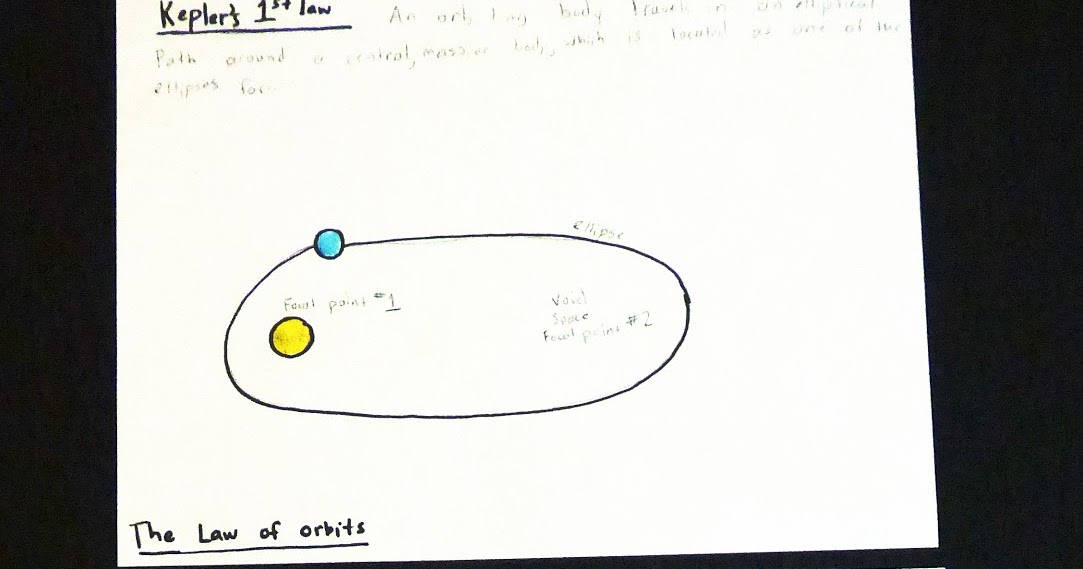 Kepler's 1st law An orbiting body travels in an elliptical
Path around a central, massive body, which is located as one of the
ellipses
ellipse
Focal point #1
Void
Space
Focal point #2
The Law of orbits